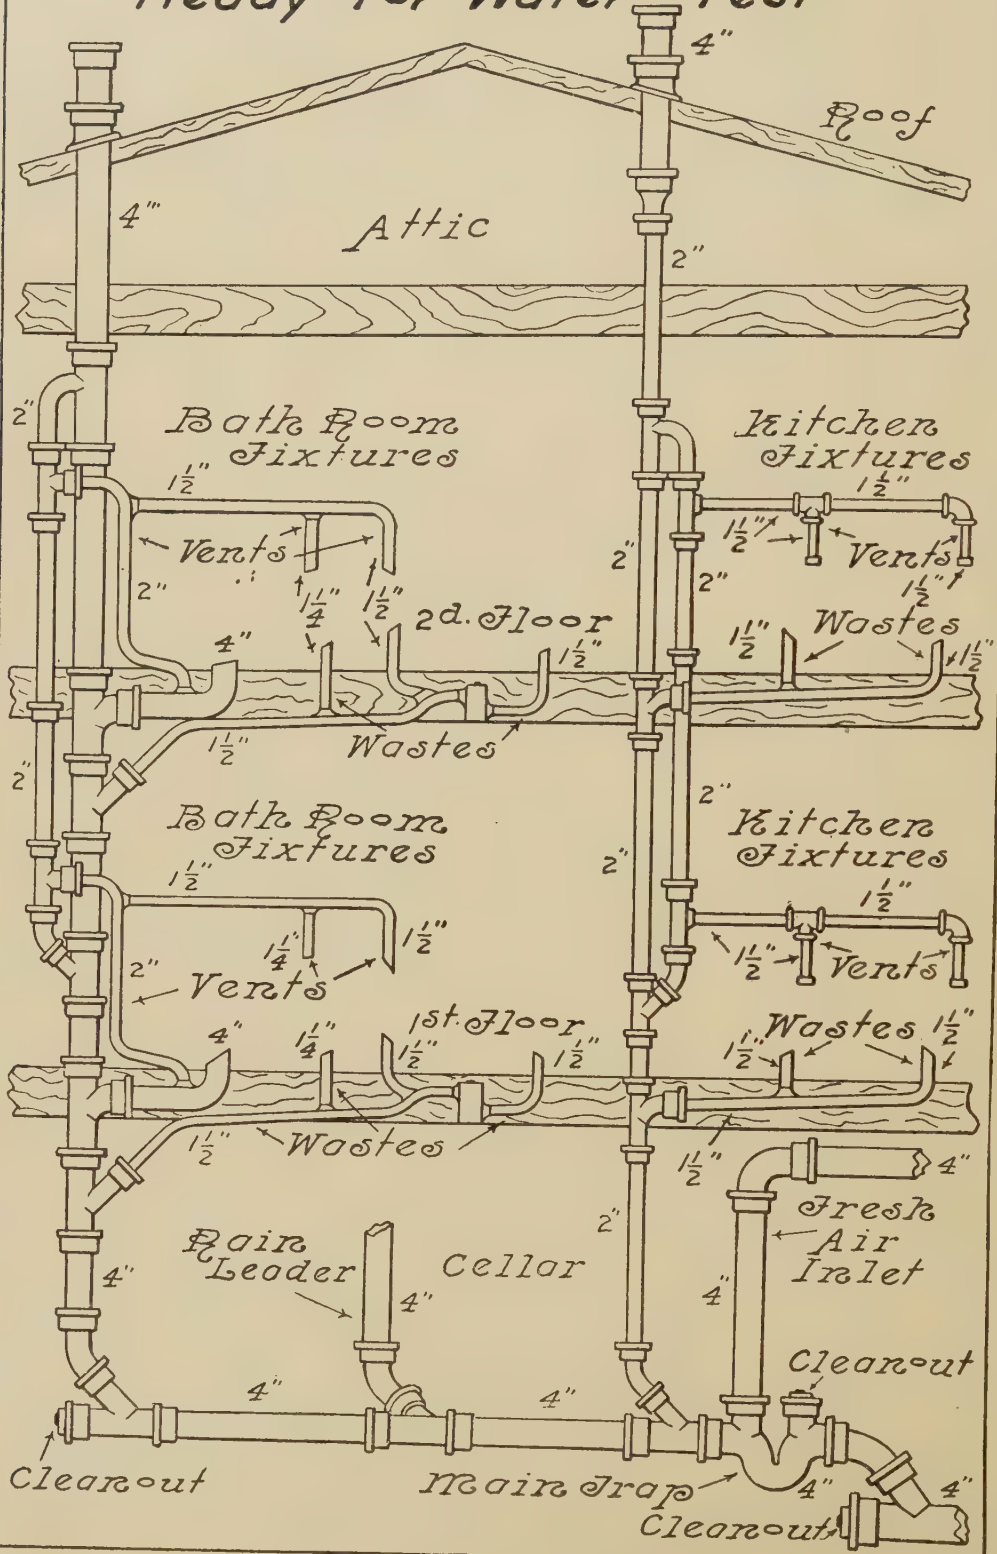 Ready for Water Test
4"
Roof
4"'
Attic
2"
2"
Bath Room
Fixtures
Kitchen
Fixtures
1 1/2"
1 1/2"
Vents
1 1/2"
Vents
2"
2"
2"
1 1/4"
1 1/2"
1 1/2"
4"
2d. Floor
1 1/2"
1 1/2"
Wastes
1 1/2"
1 1/2"
Wastes
2"
2"
Bath Room
Fixtures
Kitchen
Fixtures
2"
1 1/2"
1 1/2"
1 1/4"
1 1/2"
1 1/2"
Vents
2"
Vents
4"
1 1/4"
1st. Floor
1 1/2"
1 1/2"
Wastes
1 1/2"
1 1/2"
1 1/2"
Wastes
1 1/2"
4"
2"
Fresh
Air
Inlet
Rain
Leader
Cellar
4"
4"
4"
Cleanout
4"
4"
Cleanout
Main Trap
4"
4"
Cleanout